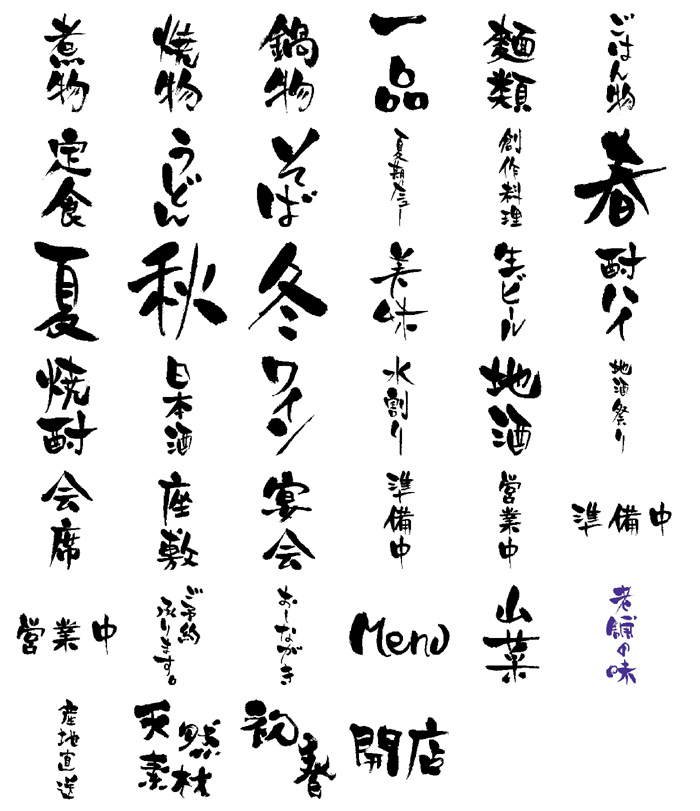 煮物
焼物
鍋物
一品
麺類
ごはん物
定食
うどん
そば
夏期メニュー
創作料理
春
夏
秋
冬
美味
生ビール
酎ハイ
焼酎
日本酒
ワイン
水割り
地酒
地酒祭り
会席
座敷
宴会
準備中
営業中
準備中
営業中
ご予約
承ります。
おしながき
Menu
山菜
老舗の味
産地直送
天然
素材
初春
開店